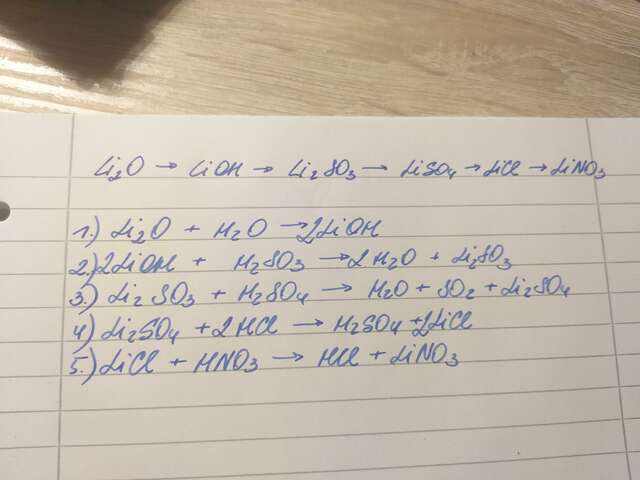 Li₂O → LiOH → Li₂SO₃ → LiSO₄ → LiCl → LiNO₃
1.) Li₂O + H₂O → 2LiOH
2.) 2LiOH + H₂SO₃ → 2H₂O + Li₂SO₃
3.) Li₂SO₃ + H₂SO₄ → H₂O + SO₂ + Li₂SO₄
4.) Li₂SO₄ + 2HCl → H₂SO₄ + 2LiCl
5.) LiCl + HNO₃ → HCl + LiNO₃